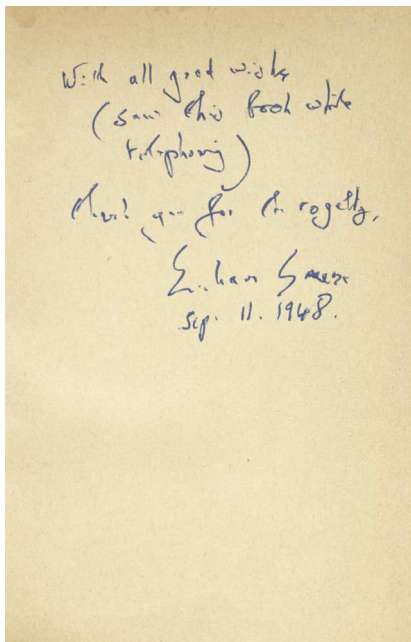 With all good wishes
(saw this book while
telephoning)
thank you for the royalty,
Graham Greene
Sep. 11. 1948.